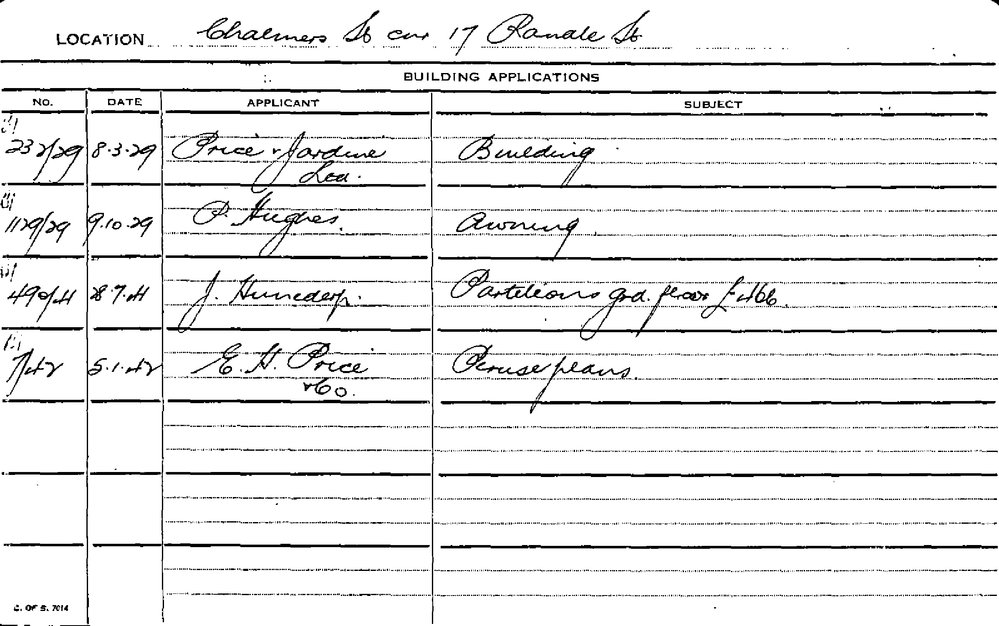 LOCATION Chalmers St cnr 17 Randle St
BUILDING APPLICATIONS
NO. DATE APPLICANT SUBJECT
232/29 8.3.29 Price & Jardine Building
Ltd.
1129/29 9.10.29 P. Hughes. Awning.
490/41 28.7.41 J. Partitions grd. floor £466.
7/42 5.1.42 E. H. Price Peruse plans.
& Co.
C. OF S. 7014